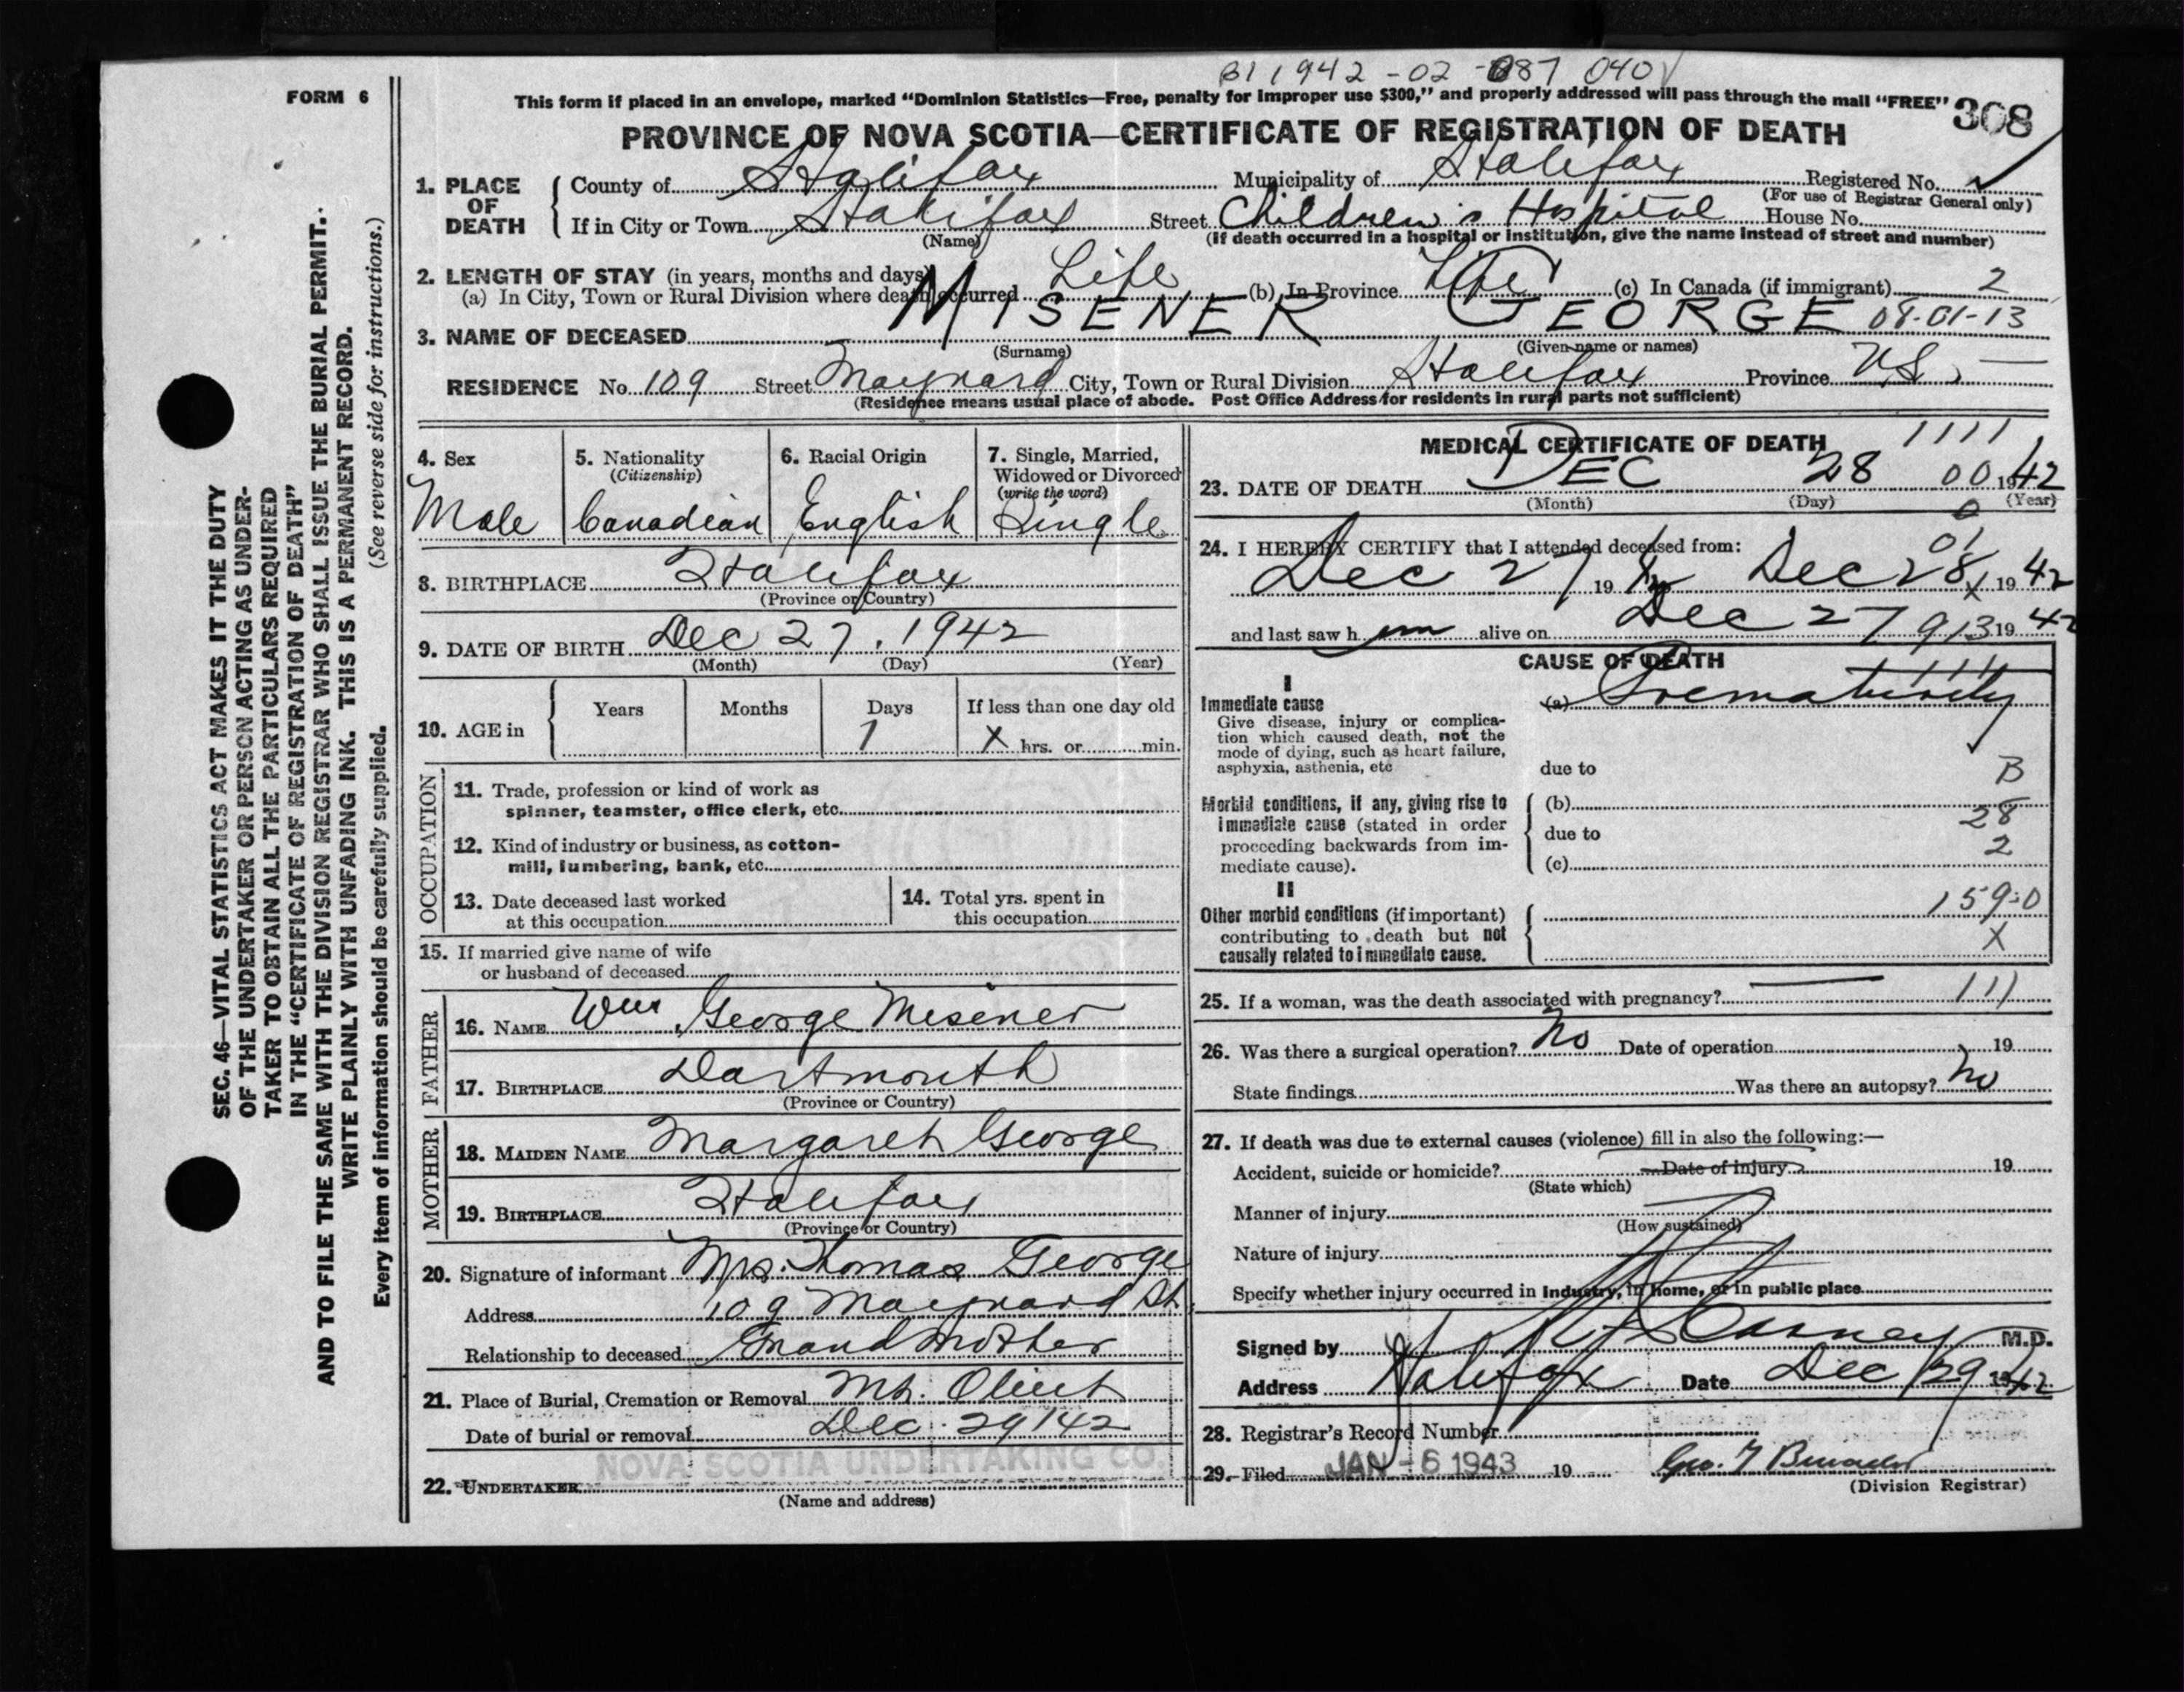 B1 1942-02-087 040
FORM 6
This form if placed in an envelope, marked "Dominion Statistics—Free, penalty for improper use $300," and properly addressed will pass through the mail "FREE" 308
PROVINCE OF NOVA SCOTIA—CERTIFICATE OF REGISTRATION OF DEATH
1. PLACE OF DEATH
County of Halifax Municipality of Halifax Registered No.
(For use of Registrar General only)
If in City or Town Halifax Street Children's Hospital House No.
(Name) (If death occurred in a hospital or institution, give the name instead of street and number)
2. LENGTH OF STAY (in years, months and days)
(a) In City, Town or Rural Division where death occurred Life (b) In Province Life (c) In Canada (if immigrant) 2
3. NAME OF DECEASED MISENER GEORGE 08-01-13
(Surname) (Given name or names)
RESIDENCE No. 109 Street Maynard City, Town or Rural Division Halifax Province N.S.
(Residence means usual place of abode. Post Office Address for residents in rural parts not sufficient)
4. Sex
Male
5. Nationality
(Citizenship)
Canadian
6. Racial Origin
English
7. Single, Married,
Widowed or Divorced
(write the word)
Single
8. BIRTHPLACE Halifax
(Province or Country)
9. DATE OF BIRTH Dec 27, 1942
(Month) (Day) (Year)
10. AGE in Years Months Days If less than one day old
1 X hrs. or min.
OCCUPATION
11. Trade, profession or kind of work as
spinner, teamster, office clerk, etc.
12. Kind of industry or business, as cotton-
mill, lumbering, bank, etc.
13. Date deceased last worked
at this occupation
14. Total yrs. spent in
this occupation
15. If married give name of wife
or husband of deceased
FATHER
16. NAME Wm George Misener
17. BIRTHPLACE Dartmouth
(Province or Country)
MOTHER
18. MAIDEN NAME Margaret George
19. BIRTHPLACE Halifax
(Province or Country)
20. Signature of informant Mrs. Thomas George
Address 109 Maynard St
Relationship to deceased Grand Mother
21. Place of Burial, Cremation or Removal Mt. Olivet
Date of burial or removal Dec. 29/42
NOVA SCOTIA UNDERTAKING CO.
22. UNDERTAKER
(Name and address)
MEDICAL CERTIFICATE OF DEATH 1111
23. DATE OF DEATH DEC 28 00 1942
(Month) (Day) (Year)
24. I HEREBY CERTIFY that I attended deceased from: 01
Dec 27 1942 Dec 28 X 1942
and last saw him alive on Dec 27 913 1942
CAUSE OF DEATH
I
Immediate cause (a) Prematurity
Give disease, injury or complica-
tion which caused death, not the
mode of dying, such as heart failure,
asphyxia, asthenia, etc
due to B
Morbid conditions, if any, giving rise to (b) 28
immediate cause (stated in order due to
proceeding backwards from im- 2
mediate cause). (c)
II
Other morbid conditions (if important) 159.0
contributing to death but not X
causally related to immediate cause.
25. If a woman, was the death associated with pregnancy? 111
26. Was there a surgical operation? No Date of operation 19
State findings Was there an autopsy? No
27. If death was due to external causes (violence) fill in also the following:—
Accident, suicide or homicide? Date of injury 19
(State which)
Manner of injury
(How sustained)
Nature of injury
Specify whether injury occurred in Industry, in home, or in public place
Signed by M.D.
Address Halifax Date Dec 29 1942
28. Registrar's Record Number
29. Filed JAN - 6 1943 19 Geo.
(Division Registrar)
SEC. 46—VITAL STATISTICS ACT MAKES IT THE DUTY
OF THE UNDERTAKER OR PERSON ACTING AS UNDER-
TAKER TO OBTAIN ALL THE PARTICULARS REQUIRED
IN THE "CERTIFICATE OF REGISTRATION OF DEATH"
AND TO FILE THE SAME WITH THE DIVISION REGISTRAR WHO SHALL ISSUE THE BURIAL PERMIT.
WRITE PLAINLY WITH UNFADING INK. THIS IS A PERMANENT RECORD.
Every item of information should be carefully supplied. (See reverse side for instructions.)